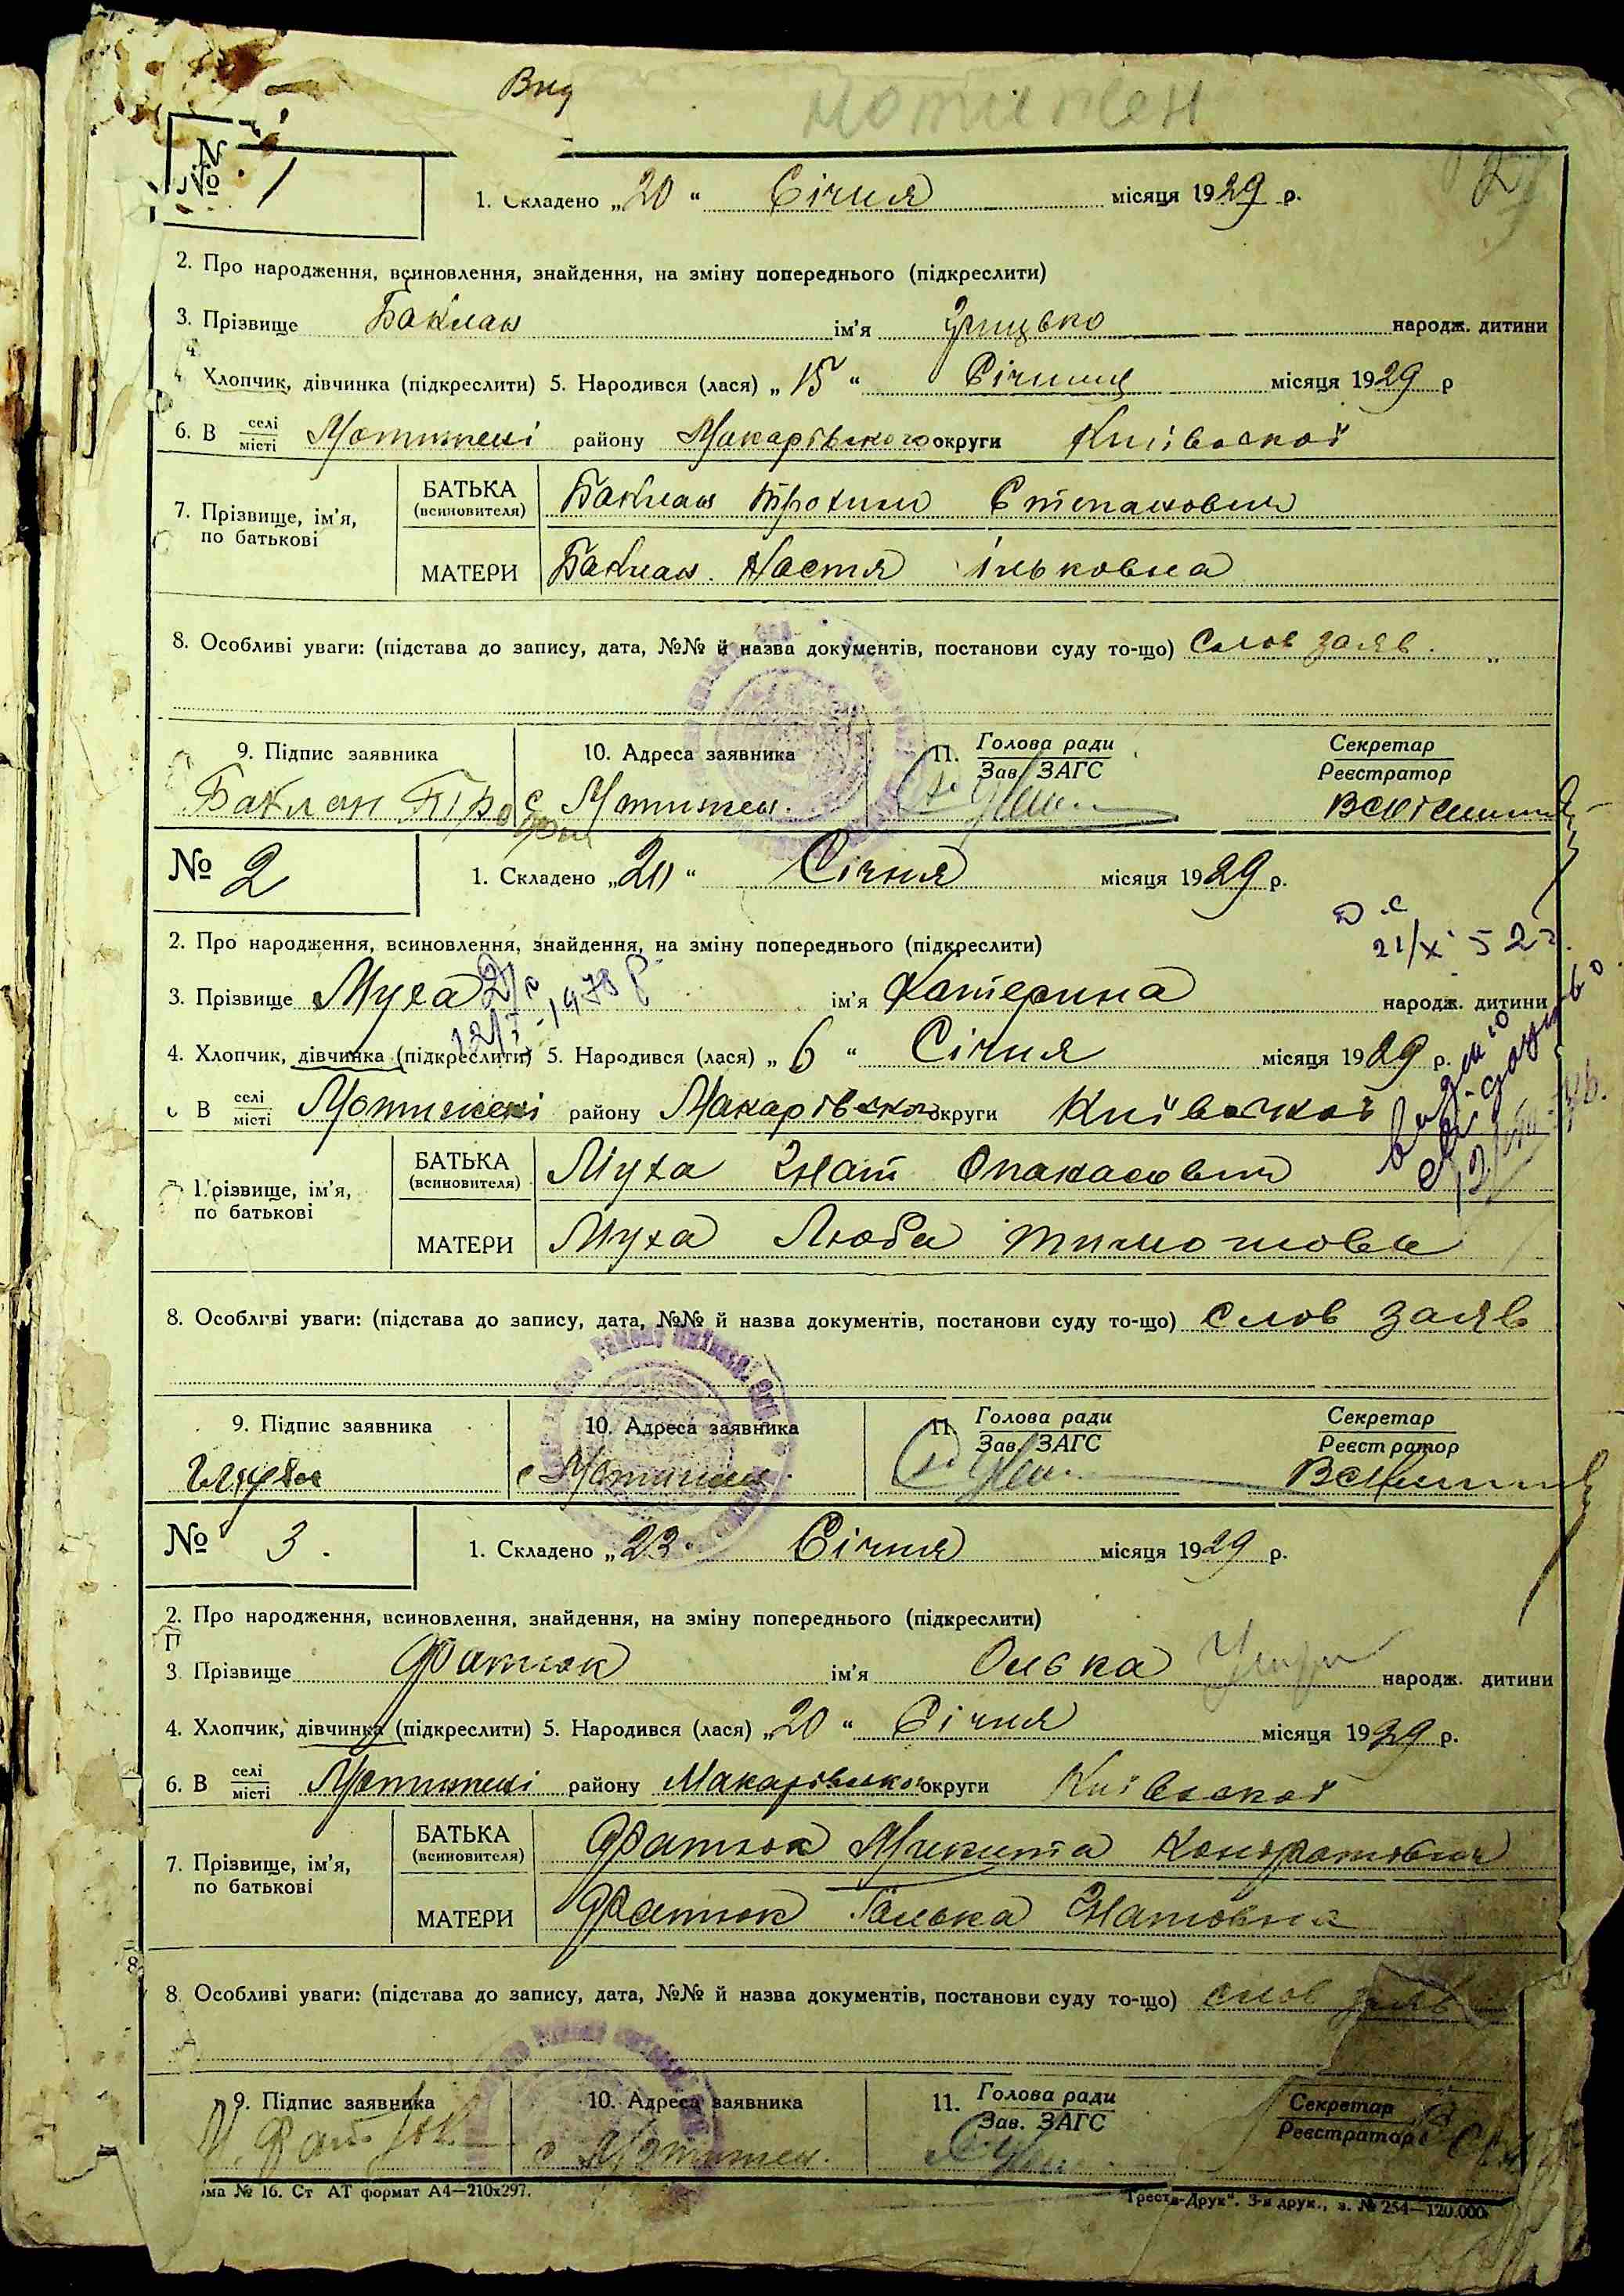 Мотижен
№ 1
1. Складено „20“ Січня місяця 1929 р.
2. Про народження, всиновлення, знайдення, на зміну попереднього (підкреслити)
3. Прізвище Баклан ім’я Грицько народж. дитини
4 Хлопчик, дівчинка (підкреслити) 5. Народився (лася) „15“ Січння місяця 1929 р
6. В селі місті Мотижені району Макарівського округи Київської
7. Прізвище, ім’я, по батькові
БАТЬКА (всиновителя) Баклан Трохим Степанович
МАТЕРИ Баклан Настя Ільковна
8. Особливі уваги: (підстава до запису, дата, №№ й назва документів, постанови суду то-що) Слов заяв.
9. Підпис заявника 10. Адреса заявника 11. Голова ради Секретар
Зав. ЗАГС Реєстратор
Баклан Трохим с Мотижен.
№ 2 1. Складено „20“ Січня місяця 1929 р.
2. Про народження, всиновлення, знайдення, на зміну попереднього (підкреслити)
21/X 52
3. Прізвище Муха ім’я Катерина народж. дитини
1978 р
4. Хлопчик, дівчинка (підкреслити) 5. Народився (лася) „6“ Січня місяця 1929 р.
В селі місті Мотижені району Макарівсько округи Київської
Прізвище, ім’я, по батькові
БАТЬКА (всиновителя) Муха Гнат Опанасович
МАТЕРИ Муха Люба Тимошовн
8. Особливі уваги: (підстава до запису, дата, №№ й назва документів, постанови суду то-що) Слов заяв
9. Підпис заявника 10. Адреса заявника 11. Голова ради Секретар
Зав. ЗАГС Реєстратор
Муха с Мотижен.
№ 3. 1. Складено „23“ Січня місяця 1929 р.
2. Про народження, всиновлення, знайдення, на зміну попереднього (підкреслити)
3. Прізвище Фатюк ім’я Олька народж. дитини
4. Хлопчик, дівчинка (підкреслити) 5. Народився (лася) „20“ Січня місяця 1929 р.
6. В селі місті Мотижені району Макарівського округи Київської
7. Прізвище, ім’я, по батькові
БАТЬКА (всиновителя) Фатюк Микита Кондратович
МАТЕРИ Фатюк Галька Гнатовна
8 Особливі уваги: (підстава до запису, дата, №№ й назва документів, постанови суду то-що) слов заяв
9. Підпис заявника 10. Адреса заявника 11. Голова ради Секретар
Зав. ЗАГС Реєстратор
М. Фатюк с Мотижен.
ма № 16. Ст АТ формат А4—210х297. Трест „-Друк“. 3-я друк., з. № 254—120.000